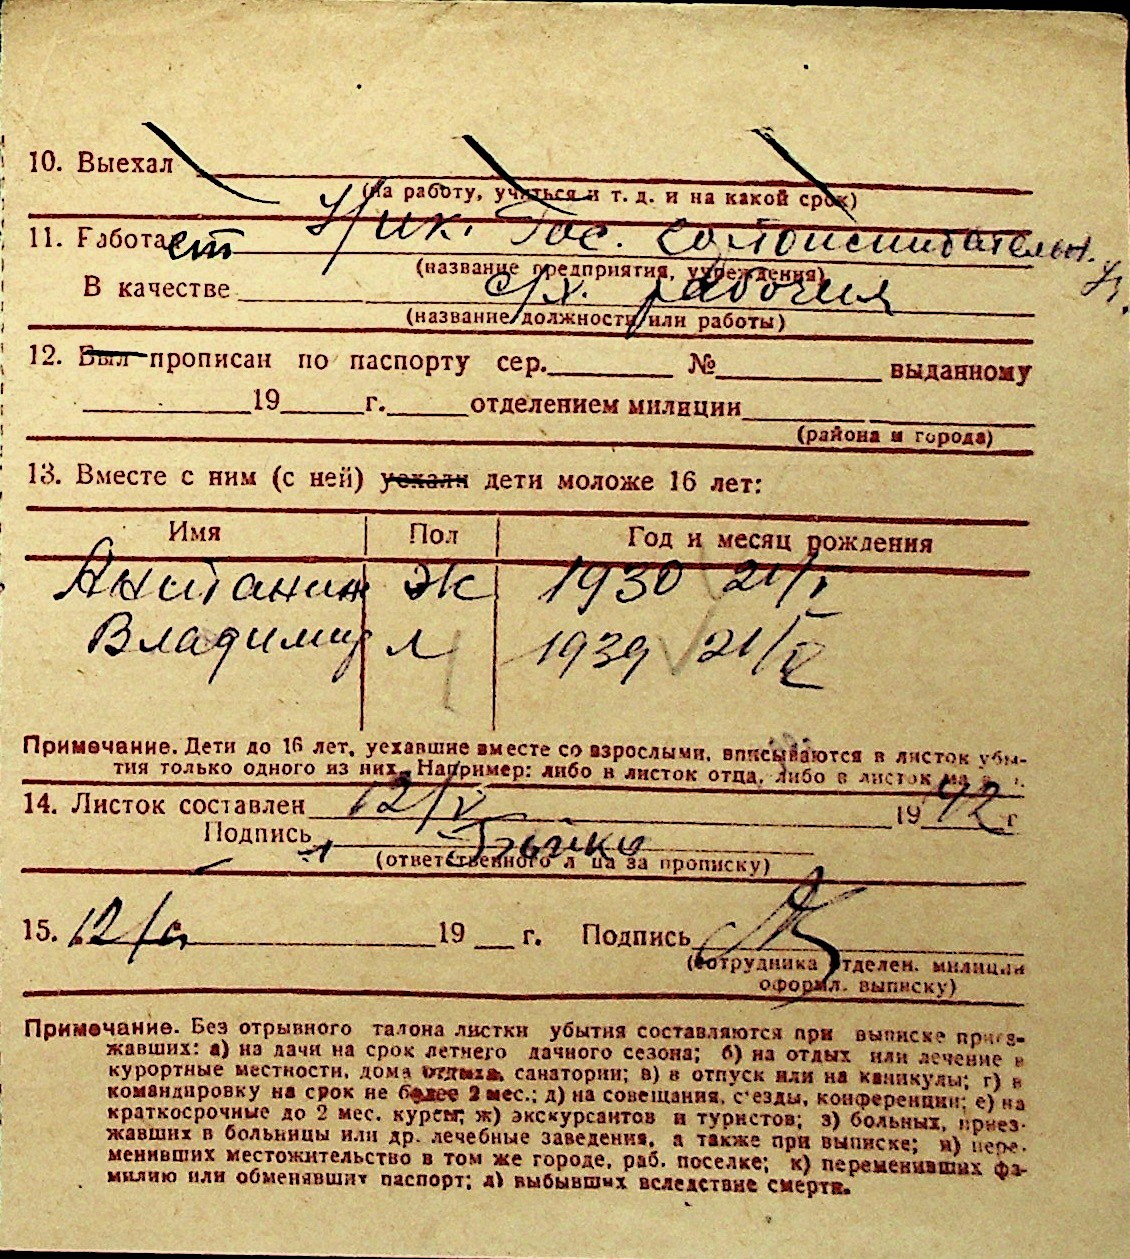 10. Выехал
(на работу, учиться и т. д. и на какой срок)
11. Работает Ник. Гос. сортоиспытательн. уч.
(название предприятия, учреждения)
В качестве с/х. рабочая
(название должности или работы)
12. Был прописан по паспорту сер. № выданному
19 г. отделением милиции
(района и города)
13. Вместе с ним (с ней) уехали дети моложе 16 лет:
Имя Пол Год и месяц рождения
Антанин ж 1930 21/I
Владимир м 1939 21/V
Примечание. Дети до 16 лет, уехавшие вместе со взрослыми, вписываются в листок убы-
тия только одного из них. Например: либо в листок отца, либо в листок
14. Листок составлен 12/V 1942 г
Подпись
(ответственного лица за прописку)
15. 12/ 19 г. Подпись
(сотрудника отделен. милиции
оформл. выписку)
Примечание. Без отрывного талона листки убытия составляются при выписке приез-
жавших: а) на дачи на срок летнего дачного сезона; б) на отдых или лечение в
курортные местности, дома отдыха, санатории; в) в отпуск или на каникулы; г) в
командировку на срок не более 2 мес.; д) на совещания, с'езды, конференции; е) на
краткосрочные до 2 мес. курсы; ж) экскурсантов и туристов; з) больных, приез-
жавших в больницы или др. лечебные заведения, а также при выписке; и) пере-
менивших местожительство в том же городе, раб. поселке; к) переменивших фа-
милию или обменявших паспорт; л) выбывших вследствие смерти.